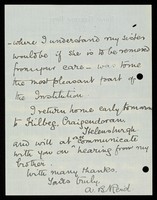 - where I understand my sister
would be if she is to be removed
from your care - was to me
the most pleasant part of
the Institution.
I return home early tomorrow
to Kilbeg, Craigendoran
Helensburgh
and will at communicate
with you on hearing from my
brother.
With many thanks.
Yours truly,
A.